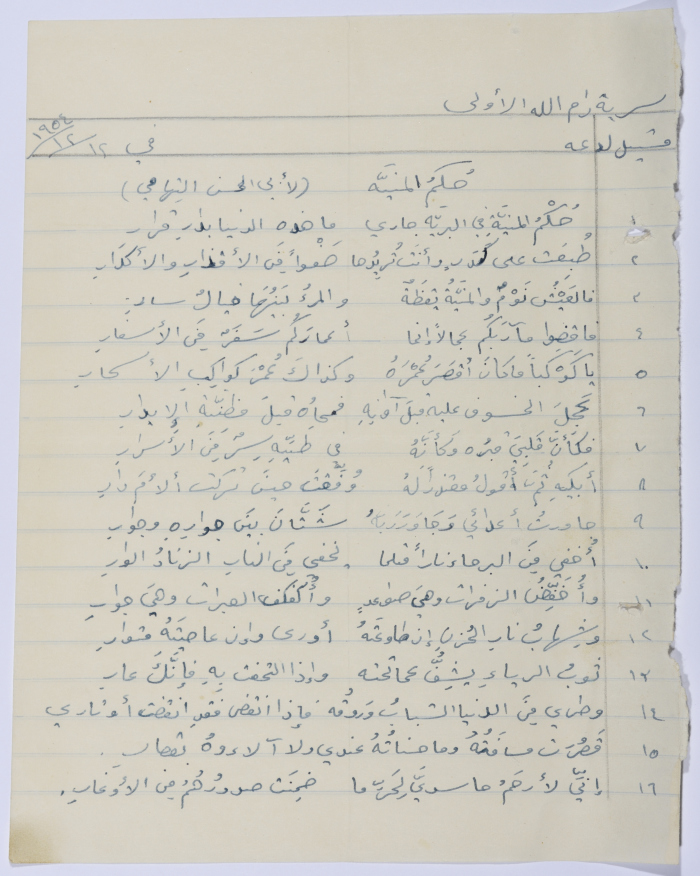 سرية رام الله الأولى
في ١٢/١٢/١٩٥٤
حُكمُ المنيَّه (لأبي الحسن التهامي)
١ حُكْمُ المنيَّةِ في البريَّه جاري ما هذه الدنيا بدار قرار
٢ طُبِعَت على كَدَرٍ وأنتَ تُريدُها صَفْواً مِنَ الأقذارِ والأكدارِ
٣ فالعَيْشُ نَوْمٌ والمنيَّةُ يقظَةٌ والمرءُ بَيْنَهُما خيالٌ سارِ
٤ فاقضوا مآربَكُم عجالاً إنما أعمارُكُم سَفَرٌ مِنَ الأسفارِ
٥ يا كَوْكباً ما كانَ أقصَرَ عُمْرَهُ وكذاكَ عُمْرُ كواكبِ الأسحارِ
٦ عَجِلَ الخسوف عليه قبلَ آوانِهِ فمحاهُ قبلَ مظنَّة الإبدارِ
٧ فكأنَّ قلبيَ قبره وكأنَّهُ في طيِّهِ سِرٌّ مِنَ الأسرارِ
٨ أبكيهِ ثُمَّ أقولُ معتذراً لهُ وُفِّقْتَ حينَ تركتَ ألأمَ دارِ
٩ جاورتُ أعدائي وَجَاوَرَ رَبَّهُ شَتَّانَ بينَ جوارِهِ وجواري
١٠ أُخفي مِنَ البرحاء ناراً مثلما يخفي مِنَ النارِ الزنادُ الوارِ
١١ وأُخَفِّضُ الزفرات وهيَ صواعدٍ وأُكَفكف العبرات وهيَ جوارِ
١٢ وشِهابُ نارِ الحُزنِ إن طاوعتَهُ أورى وإن عاصيتَهُ متوارِ
١٣ ثوبُ الرياءِ يشِفُّ عما تحته وإذا التحفتَ بِهِ فإنَّكَ عارِ
١٤ وطري مِنَ الدنيا الشبابُ وَرَوقُه فإذا انقضى فقدِ انقضت أوتاري
١٥ قَصُرَت مسافَتُهُ وما حسناتُهُ عندي ولا آلاءوهُ بقصارِ
١٦ إنيِّ لأرحَمُ حاسديَّ لِحَرِّ ما ضمِنَت صدورُهُمُ مِنَ الأوغارِ.